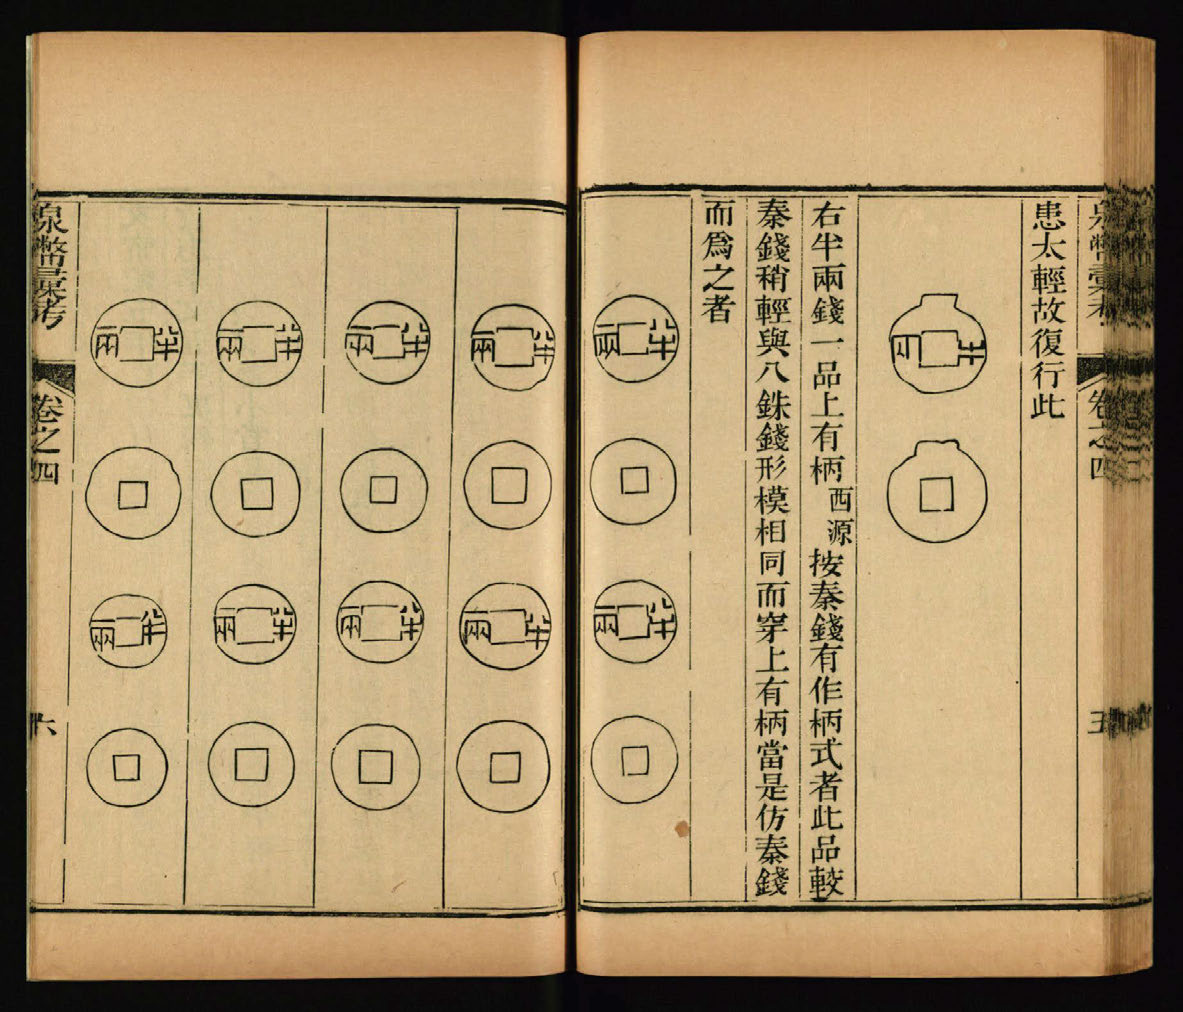 泉幣彙考 卷之四 五
患太輕故復行此
半兩
右半兩錢一品上有柄西源按秦錢有作柄式者此品較
秦錢稍輕與八銖錢形模相同而穿上有柄當是仿秦錢
而爲之者
半兩
半兩
半兩
半兩
半兩
半兩
半兩
半兩
半兩
半兩
泉幣彙考 卷之四 六